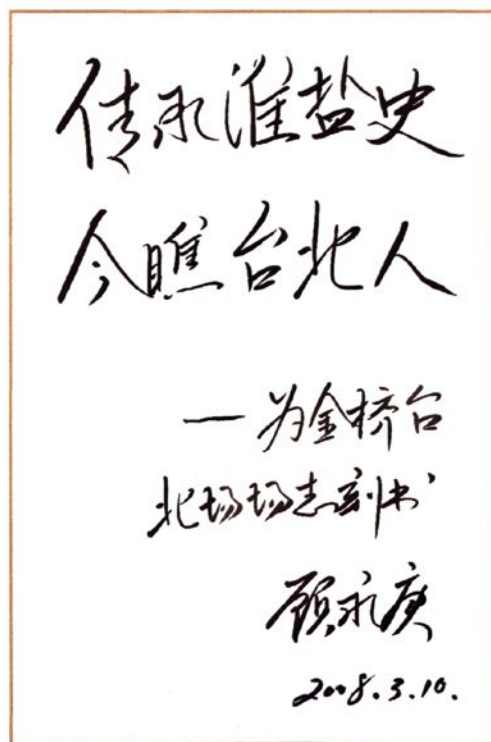 淮盐史
今瞧台北人
—为金桥台
北场场志刻书
顾永庚
2008.3.10.